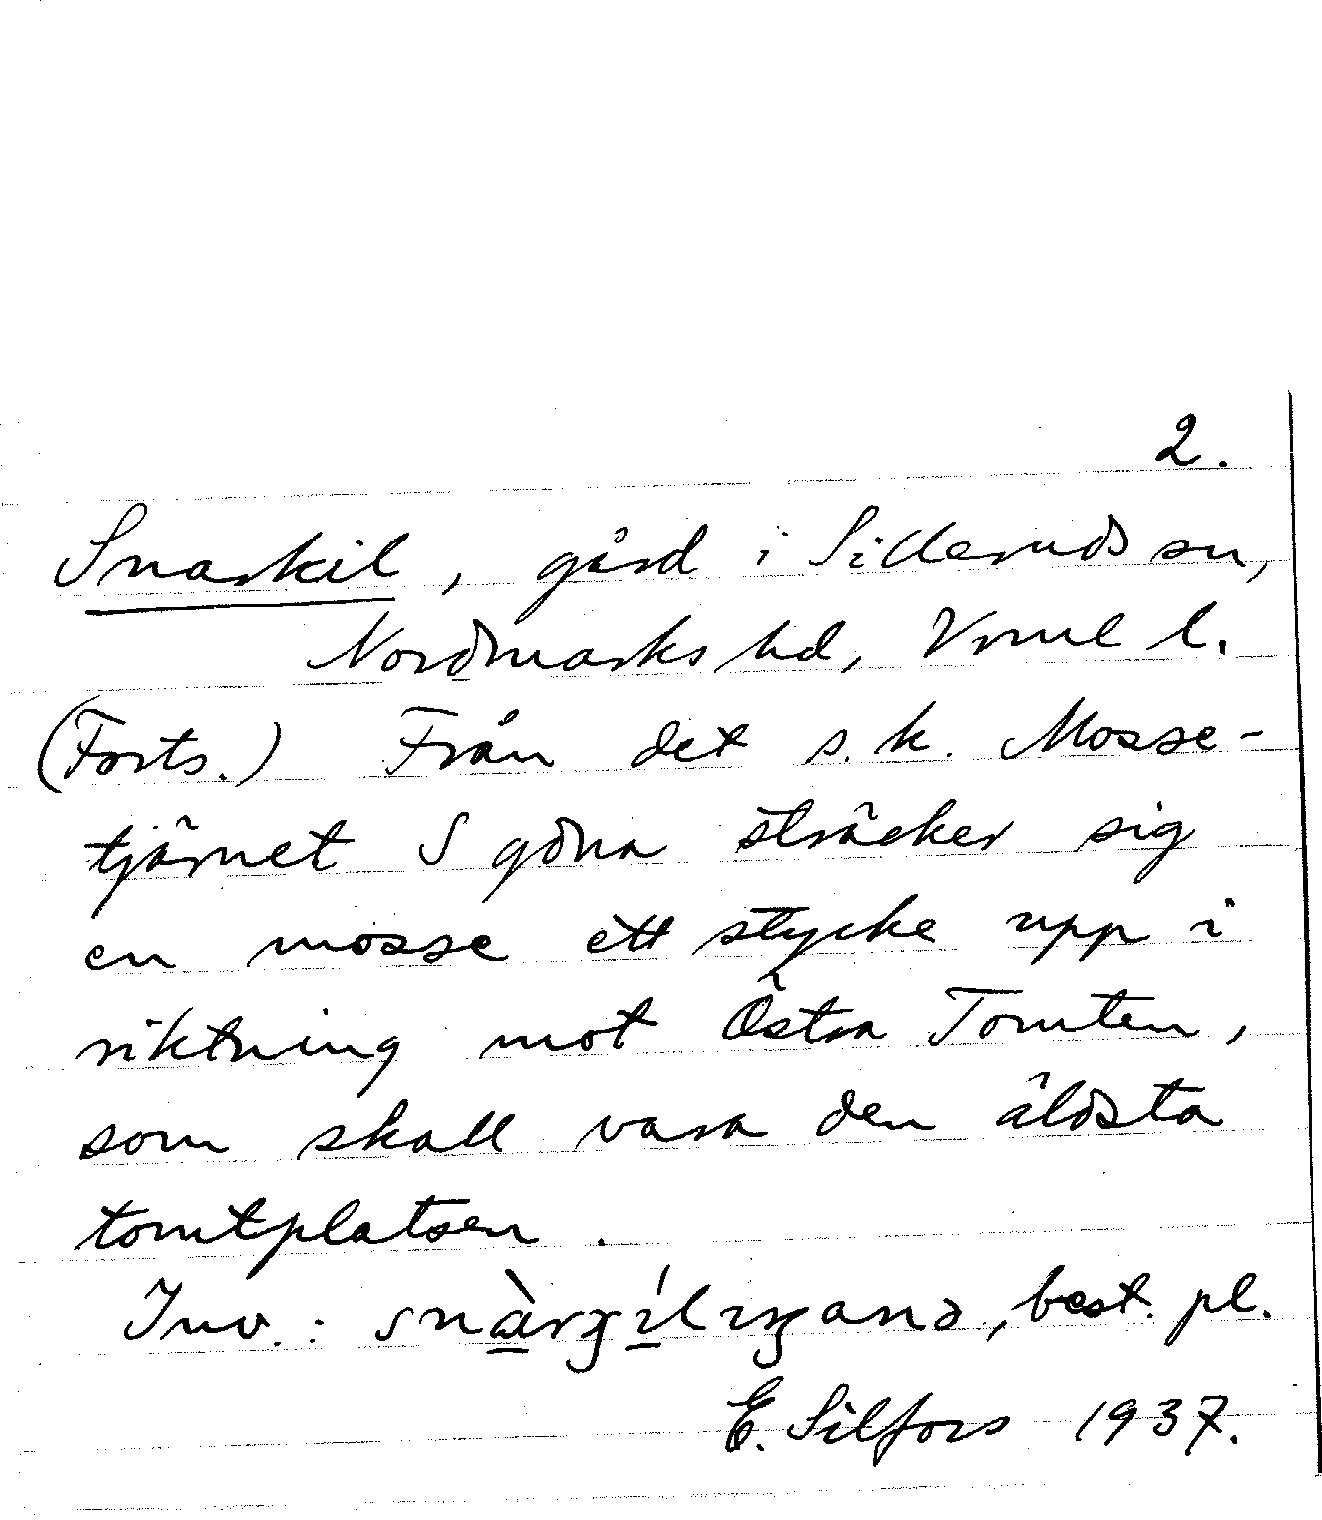 2.
Snarkil, gård i Silleruds sn,
Nordmarks hd, Vrml l.
(Forts.) Från det s.k. Mosse-
tjärnet S gdna sträcker sig
en mosse ett stycke upp i
riktning mot Östra Tomten,
som skall vara den äldsta
tomtplatsen.
Inv.: best. pl.
E. Silfors 1937.